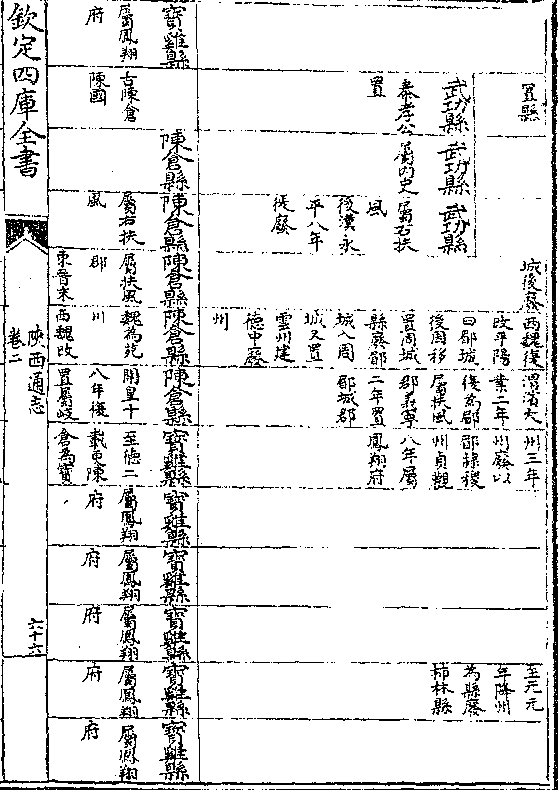 置縣
城後廢
西魏復
改平陽
曰郿城
後周移
置周城
縣廢郿
城入周
城又置
雲州建
德中廢
州
渭濱大
業二年
後為郿
屬扶風
郡義寧
二年置
郿城郡
州三年
州廢以
郿隸稷
州貞觀
八年屬
鳳翔府
至元元
年降州
為縣廢
柿林縣
武功縣
秦孝公
置
武功縣
屬內史
武功縣
屬右扶
風
後漢永
平八年
徙廢
寶雞縣
屬鳳翔
府
古陳倉
陳國
陳倉縣
陳倉縣
屬右扶
風
陳倉縣
屬扶風
郡
東晉末
陳倉縣
魏為苑
川
西魏改
陳倉縣
開皇十
八年復
置屬岐
寶雞縣
至德二
載更陳
倉為寶
寶雞縣
屬鳳翔
府
寶雞縣
屬鳳翔
府
寶雞縣
屬鳳翔
府
寶雞縣
屬鳳翔
府
寶雞縣
屬鳳翔
府
欽定四庫全書
陝西通志
卷二
六十六